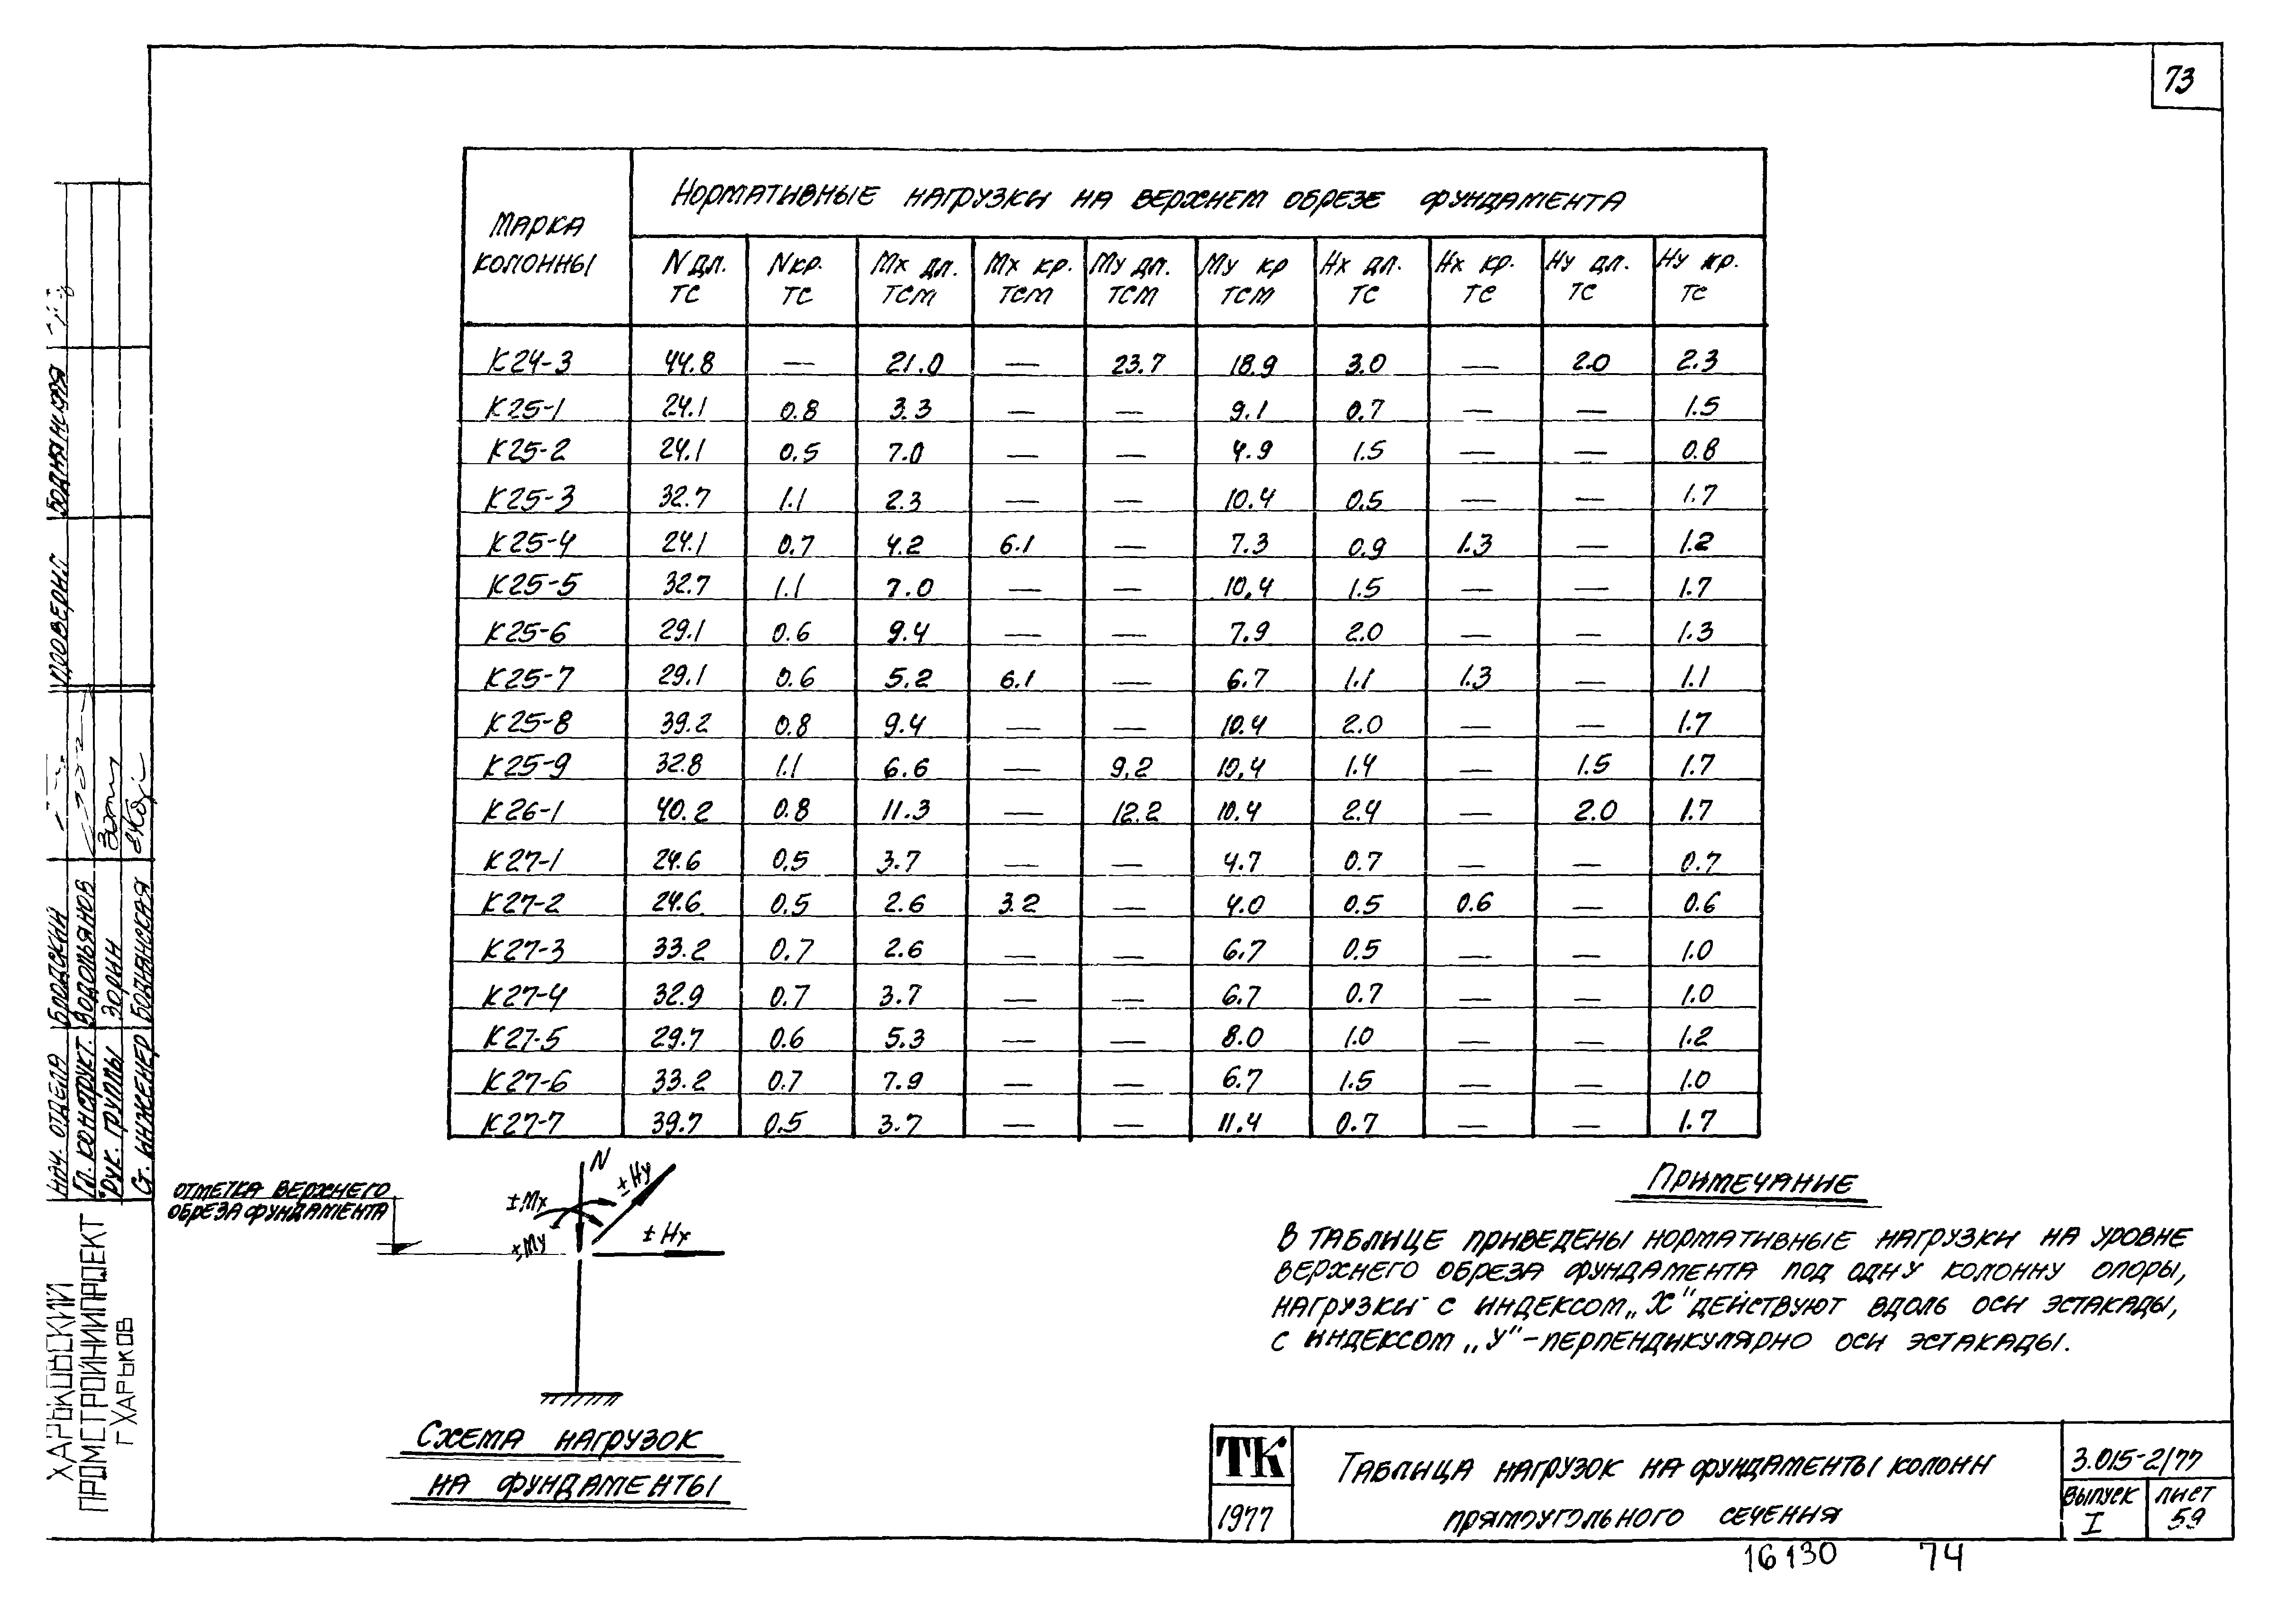 73
МАРКА КОЛОННЫ
НОРМАТИВНЫЕ НАГРУЗКИ НА ВЕРХНЕМ ОБРЕЗЕ ФУНДАМЕНТА
N дл. ТС | N кр. ТС | Mx дл. ТСМ | Mx кр. ТСМ | My дл. ТСМ | My кр ТСМ | Hx дл. ТС | Hx кр. ТС | Hy дл. ТС | Hy кр. ТС
К24-3 44.8 — 21.0 — 23.7 18.9 3.0 — 2.0 2.3
К25-1 24.1 0.8 3.3 — — 9.1 0.7 — — 1.5
К25-2 24.1 0.5 7.0 — — 4.9 1.5 — — 0.8
К25-3 32.7 1.1 2.3 — — 10.4 0.5 — — 1.7
К25-4 24.1 0.7 4.2 6.1 — 7.3 0.9 1.3 — 1.2
К25-5 32.7 1.1 7.0 — — 10.4 1.5 — — 1.7
К25-6 29.1 0.6 9.4 — — 7.9 2.0 — — 1.3
К25-7 29.1 0.6 5.2 6.1 — 6.7 1.1 1.3 — 1.1
К25-8 39.2 0.8 9.4 — — 10.4 2.0 — — 1.7
К25-9 32.8 1.1 6.6 — 9.2 10.4 1.4 — 1.5 1.7
К26-1 40.2 0.8 11.3 — 12.2 10.4 2.4 — 2.0 1.7
К27-1 24.6 0.5 3.7 — — 4.7 0.7 — — 0.7
К27-2 24.6 0.5 2.6 3.2 — 4.0 0.5 0.6 — 0.6
К27-3 33.2 0.7 2.6 — — 6.7 0.5 — — 1.0
К27-4 32.9 0.7 3.7 — — 6.7 0.7 — — 1.0
К27-5 29.7 0.6 5.3 — — 8.0 1.0 — — 1.2
К27-6 33.2 0.7 7.9 — — 6.7 1.5 — — 1.0
К27-7 39.7 0.5 3.7 — — 11.4 0.7 — — 1.7
ОТМЕТКА ВЕРХНЕГО
ОБРЕЗА ФУНДАМЕНТА
N
±Mx
±My
±Hy
±Hx
СХЕМА НАГРУЗОК
НА ФУНДАМЕНТЫ
ПРИМЕЧАНИЕ
В ТАБЛИЦЕ ПРИВЕДЕНЫ НОРМАТИВНЫЕ НАГРУЗКИ НА УРОВНЕ
ВЕРХНЕГО ОБРЕЗА ФУНДАМЕНТА ПОД ОДНУ КОЛОННУ ОПОРЫ,
НАГРУЗКИ С ИНДЕКСОМ „X" ДЕЙСТВУЮТ ВДОЛЬ ОСИ ЭСТАКАДЫ,
С ИНДЕКСОМ „У"-ПЕРПЕНДИКУЛЯРНО ОСИ ЭСТАКАДЫ.
ТК
1977
ТАБЛИЦА НАГРУЗОК НА ФУНДАМЕНТЫ КОЛОНН
ПРЯМОУГОЛЬНОГО СЕЧЕНИЯ
3.015-2/77
ВЫПУСК I
ЛИСТ 59
16130 74
НАЧ. ОТДЕЛА БРОДСКИЙ
ГЛ. КОНСТРУКТ. ВОДОПЬЯНОВ
РУК. ГРУППЫ ЗОРИН
СТ. ИНЖЕНЕР БОДНЯНСКАЯ
ПРОВЕРИЛ БОДНЯНСКАЯ
ХАРЬКОВСКИЙ
ПРОМСТРОЙНИИПРОЕКТ
Г ХАРЬКОВ